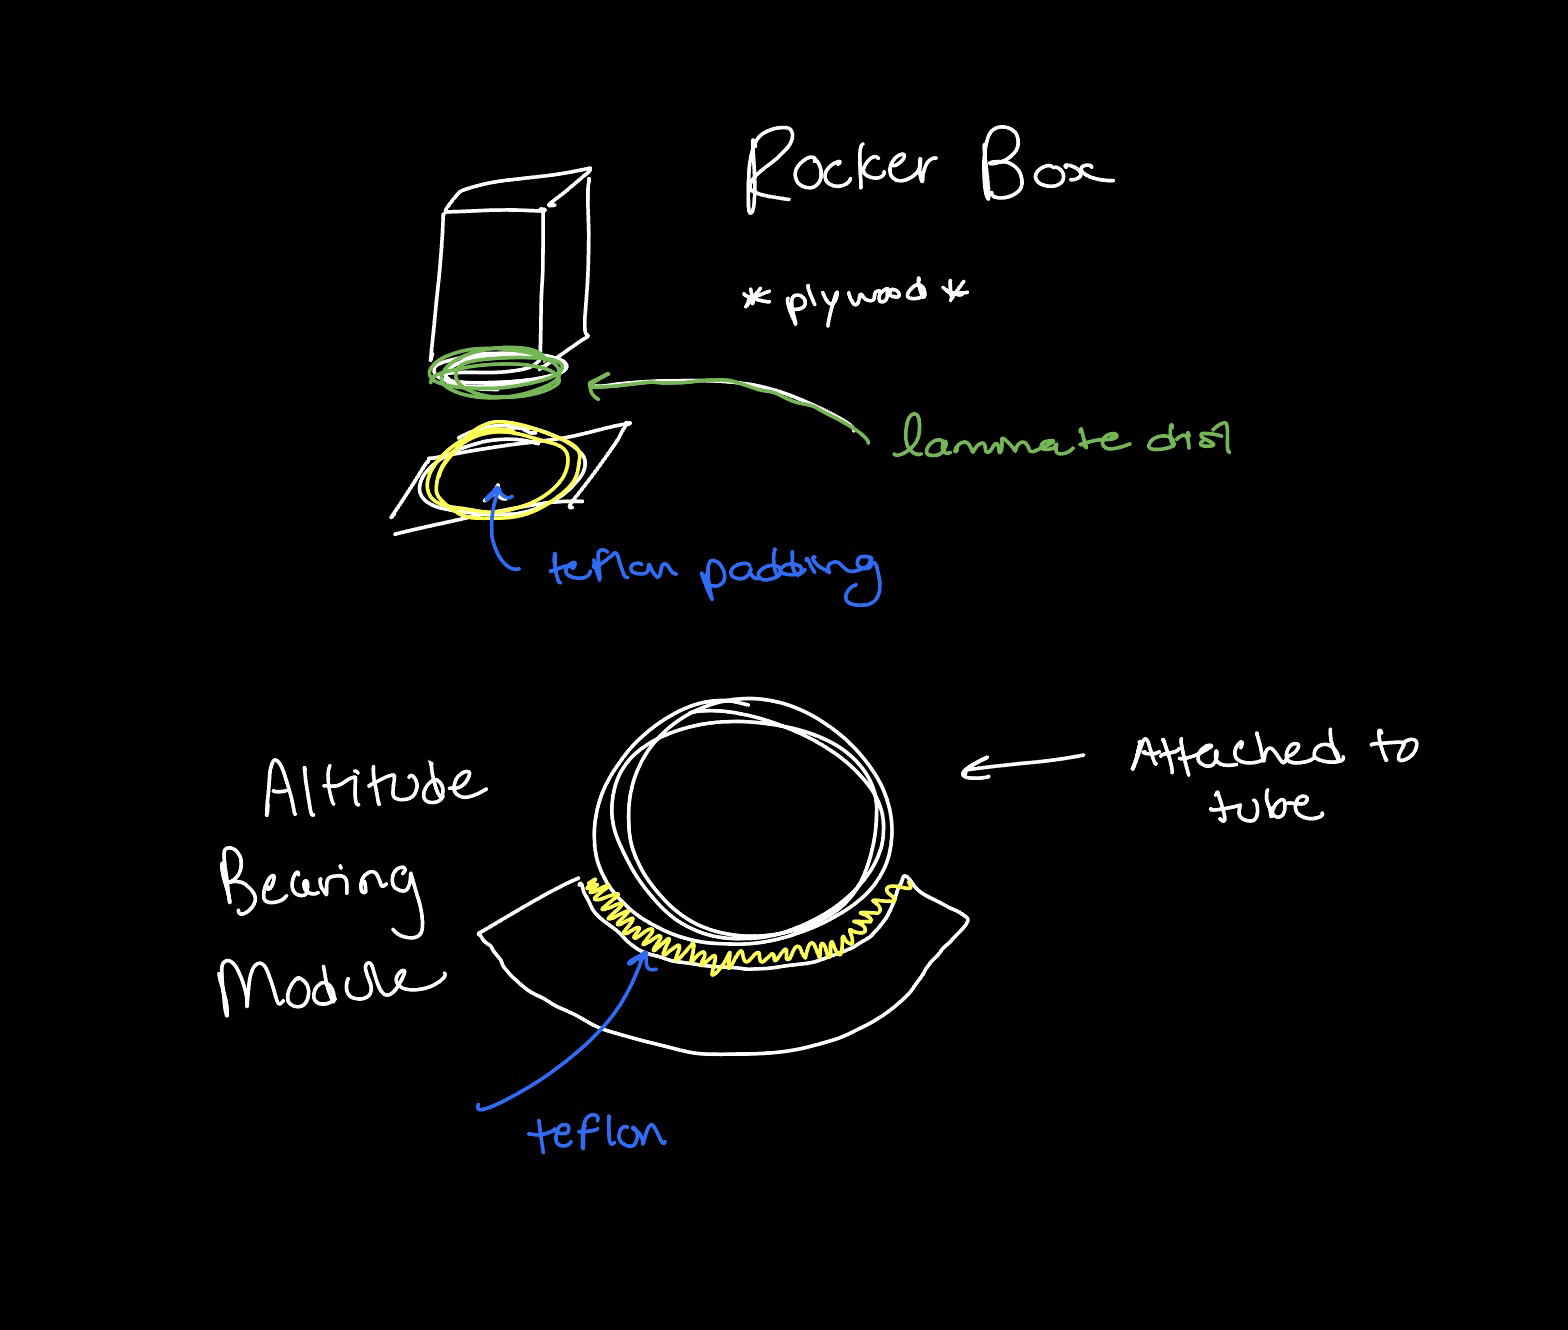 Rocker Box
*plywood*
laminate disk
teflon padding
Altitude
Bearing
Module
Attached to
tube
teflon